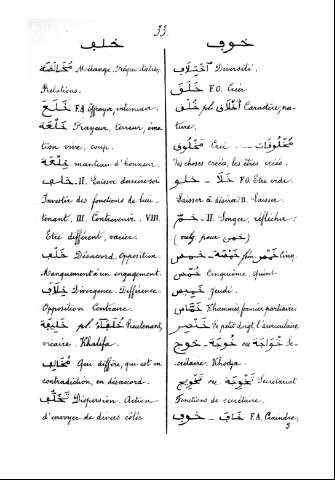 33.
خلف
مُخَالَطَة Mélange. Fréquentation,
Relations.
خَلَعَ F.A. Effrayer, intimider.
خَلْعَة Frayeur, terreur, émo
tion vive, coup.
خِلْعَة manteau d'honneur.
خلف II. Laisser derrière soi
Investir des fonctions de lieu-
tenant. III. Contrevenir. VIII.
Etre différent, varier.
خُلْف Désaccord. Opposition.
Manquement à un engagement.
خِلَاف Divergence. Différence.
Opposition. Contraire.
خَلِيفَة pl. خُلَفَاء Lieutenant,
vicaire. Khalifa.
مُخَالِف Qui diffère, qui est en
contradiction, en désaccord.
تَخَلُّف Dispersion. Action
d'envoyer de divers côtés
خوف
اخْتِلَاف Diversité.
خَلَقَ F.O. Créer
خُلْق pl. أَخْلَاق Caractère, na-
ture.
مَخْلُوق Créé. مَخْلُوقَات
les choses créées, les êtres créés.
خلو - خَلَا F.O. Etre vide.
Laisser à désirer II. Laisser.
خمّ II. Songer, réfléchir.
(vulg. pour خمن)
خمس - خَمْسَة fém. خَمْس Cinq.
خُمُس Cinquième. Quint
خَمِيس Jeudi.
خَمَّاس Khammès fermier partiaire.
خِنْصِر le petit doigt, l'auriculaire
خوج - خُوجَة ou خَوَاجَة Se-
crétaire. Khodja.
تَخْوِيج ou تَخْوِجَة Secrétariat
Fonctions de secrétaire.
خوف - خَافَ F.A. Craindre,